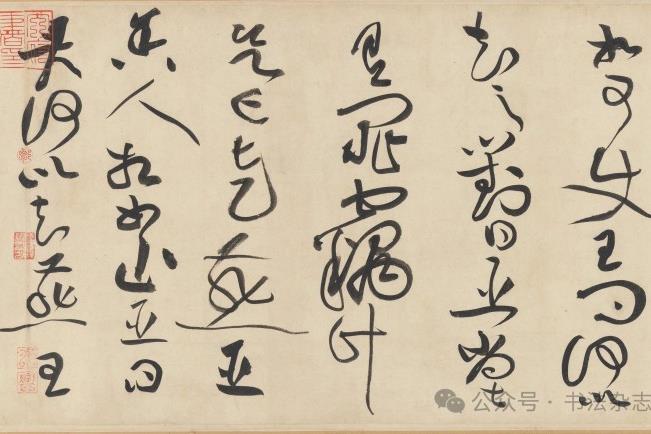 如可使王問何以
知之對曰臣嘗
有罪竊計
欲亡走燕臣
舍人相如止臣曰
君何以知燕王
公众号 · 书法杂志